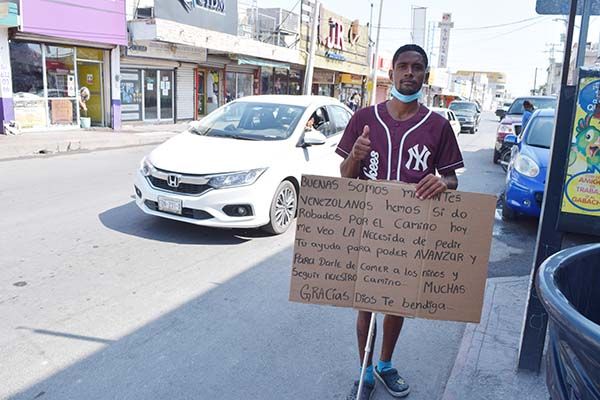 BUENAS SOMOS MIGRANTES
VENEZOLANOS hemos Si do
Robados POR EL CAMINO hoy
me Veo LA Necesida de pedir
Tu ayuda para poder AVANZAR y
PARA DarLe de comer a los niños y
Seguir nuestro Camino... MUCHAS
GRACIAS Dios Te bendiga...
NY
kees